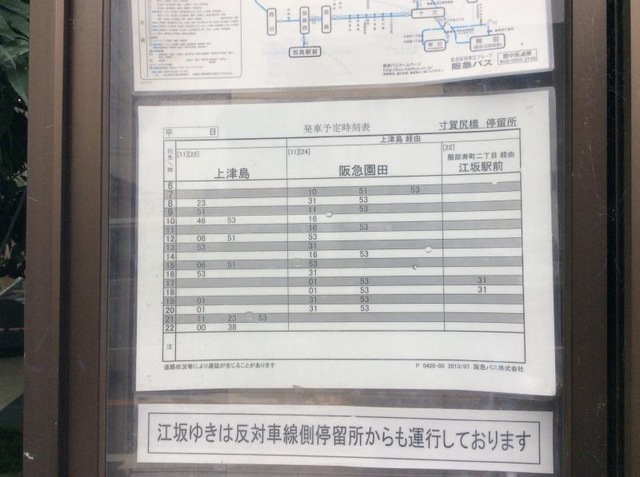 加島駅前
阪急バス
平 日 発車予定時刻表 寸賀尻橋 停留所
行先/時 [11][22] 上津島
上津島 経由 [11][24] 阪急園田
[22] 服部寿町二丁目 経由 江坂駅前
6
7 10 51 53
8 23 31 53
9 51 11 53
10 46 53 16
11 16 53
12 06 51 53
13 53 31
14 16 53
15 06 51 53
16 53 31
17 01 53 31
18 01 53 31
19 01 31 53
20 01 31 53
21 11 23 53
22 00 38
注
道路状況等により遅延が生じることがあります P 0420-00 2013/07 阪急バス株式会社
江坂ゆきは反対車線側停留所からも運行しております